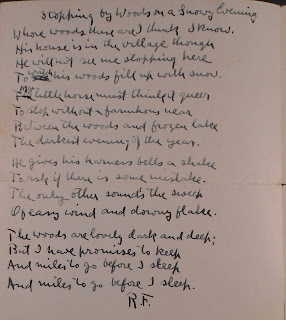 Stopping by Woods on a Snowy Evening
Whose woods these are I think I know.
His house is in the village though
He will not see me stopping here
To watch his woods fill up with snow.
My little horse must think it queer
To stop without a farmhouse near
Between the woods and frozen lake
The darkest evening of the year.
He gives his harness bells a shake
To ask if there is some mistake.
The only other sounds the sweep
Of easy wind and downy flake.
The woods are lovely dark and deep;
But I have promises to keep
And miles to go before I sleep
And miles to go before I sleep.
R.F.